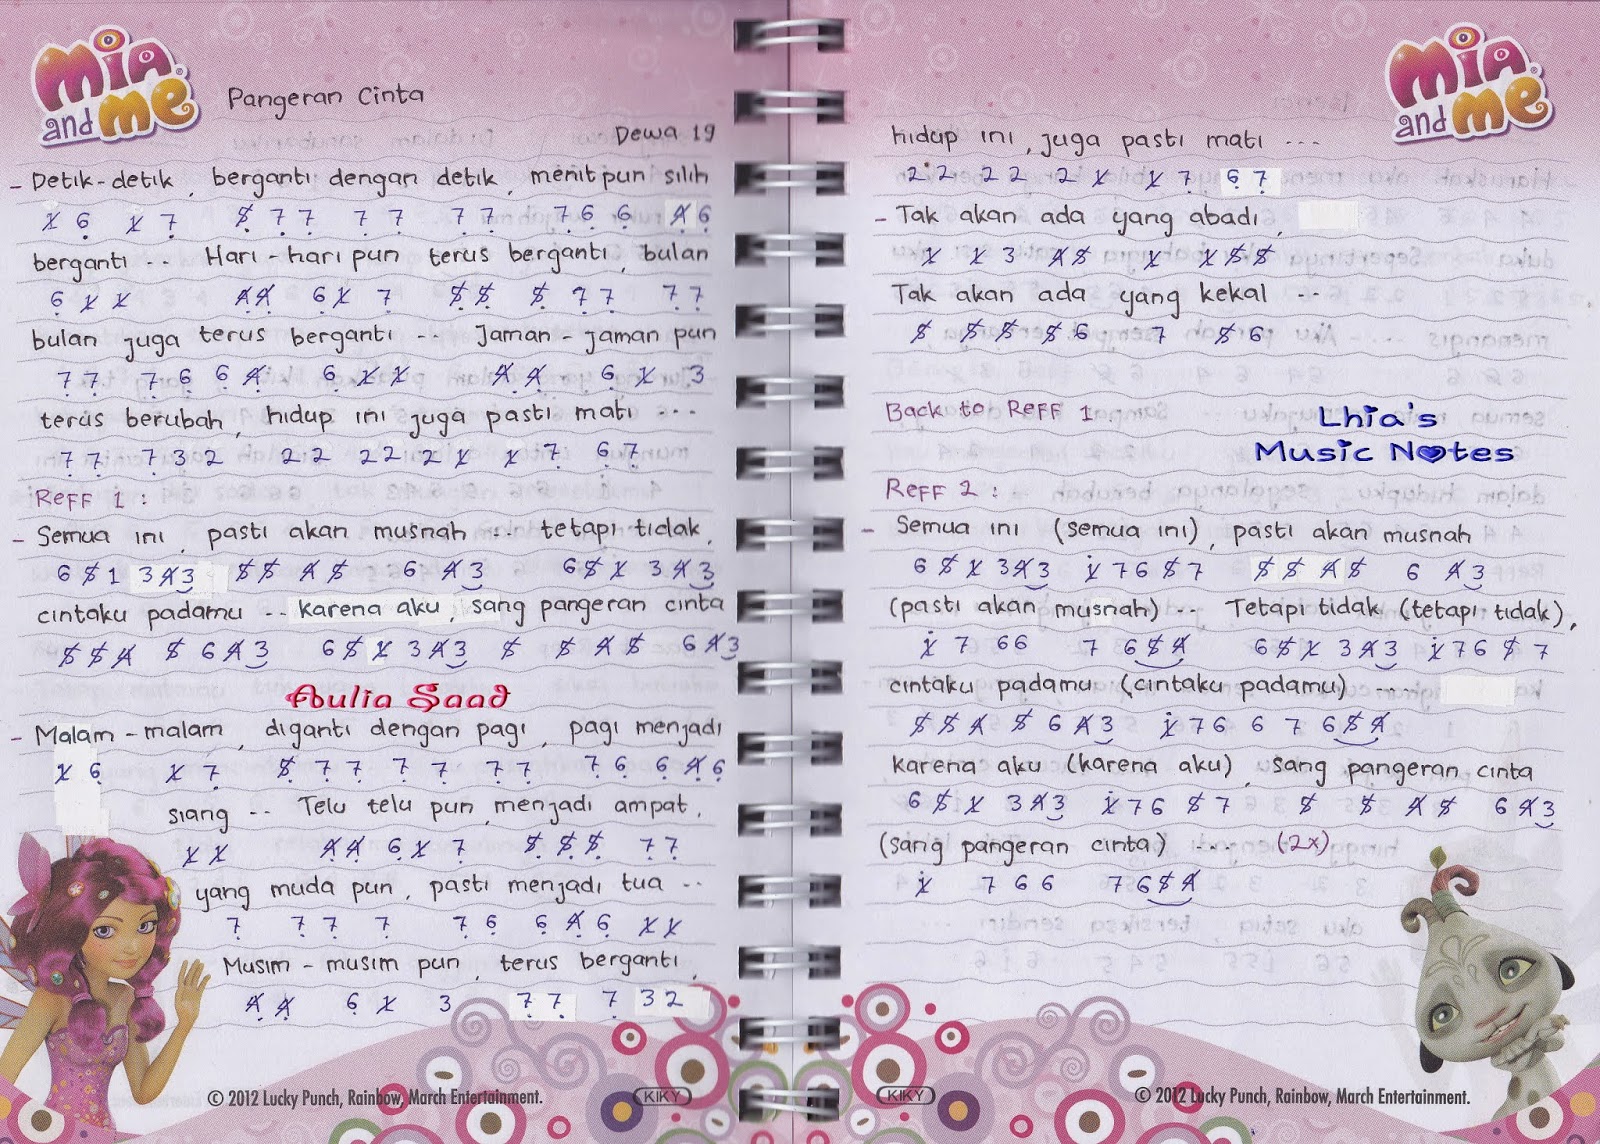 mia and me
Pangeran Cinta
Dewa 19
- Detik-detik, berganti dengan detik, menit pun silih
1̸ 6̣ 1̸ 7̣ 5̸̣ 7̣ 7̣ 7̣ 7̣ 7̣ 7̣ 7̣ 6̣ 6̣ 4̸̣ 6̣
berganti -- Hari-hari pun terus berganti, bulan
6̣ 1̸ 1̸ 4̸̣ 4̸̣ 6̣ 1̸ 7̣ 5̸̣ 5̸̣ 5̸̣ 7̣ 7̣ 7̣ 7̣
bulan juga terus berganti -- Jaman-jaman pun
7̣ 7̣ 7̣ 6̣ 6̣ 4̸̣ 6̣ 1̸ 1̸ 4̸̣ 4̸̣ 6̣ 1̸ 3
terus berubah, hidup ini juga pasti mati ---
7̣ 7̣ 7̣ 3 2 2 2 2 2 2 1̸ 1̸ 7̣ 6̣ 7̣
Reff 1 :
- Semua ini, pasti akan musnah -- tetapi tidak,
6 5̸ 1 3 4̸ 3 5̸ 5̸ 4̸ 5̸ 6 4̸ 3 6 5̸ 1̸ 3 4̸ 3
cintaku padamu -- karena aku, sang pangeran cinta
5̸ 5̸ 4̸ 5̸ 6 4̸ 3 6 5̸ 1̸ 3 4̸ 3 5̸ 5̸ 4̸ 5̸ 6 4̸ 3
Aulia Saad
- Malam-malam, diganti dengan pagi, pagi menjadi
1̸ 6̣ 1̸ 7̣ 5̸̣ 7̣ 7̣ 7̣ 7̣ 7̣ 7̣ 7̣ 6̣ 6̣ 4̸̣ 6̣
siang -- Telu telu pun, menjadi ampat,
1̸ 1̸ 4̸̣ 4̸̣ 6̣ 1̸ 7̣ 5̸̣ 5̸̣ 5̸̣ 7̣ 7̣
yang muda pun, pasti menjadi tua --
7̣ 7̣ 7̣ 7̣ 7̣ 6̣ 6̣ 4̸̣ 6̣ 1̸ 1̸
Musim-musim pun, terus berganti,
4̸̣ 4̸̣ 6̣ 1̸ 3 7̣ 7̣ 7̣ 3 2
© 2012 Lucky Punch, Rainbow, March Entertainment.
KIKY
mia and me
hidup ini, juga pasti mati ---
2 2 2 2 2 1̸ 1̸ 7̣ 6̣ 7̣
- Tak akan ada yang abadi,
1̸ 1̸ 3 4̸ 5̸ 1̸ 1̸ 5̸ 5̸
Tak akan ada yang kekal ---
5̸ 5̸ 5̸ 5̸ 6 7 5̸ 6
Back to Reff 1.
Lhia's
Music Notes
Reff 2 :
- Semua ini (semua ini), pasti akan musnah
6 5̸ 1̸ 3 4̸ 3 1̸̇ 7 6 5̸ 7 5̸ 5̸ 4̸ 5̸ 6 4̸ 3
(pasti akan musnah) -- Tetapi tidak (tetapi tidak),
1̸̇ 7 6 6 7 6 5̸ 4̸ 6 5̸ 1̸ 3 4̸ 3 1̸̇ 7 6 5̸ 7
cintaku padamu (cintaku padamu) ----
5̸ 5̸ 4̸ 5̸ 6 4̸ 3 1̸̇ 7 6 6 7 6 5̸ 4̸
karena aku (karena aku), sang pangeran cinta
6 5̸ 1̸ 3 4̸ 3 1̸̇ 7 6 5̸ 7 5̸ 5̸ 4̸ 5̸ 6 4̸ 3
(sang pangeran cinta) ---- (2x)
1̸̇ 7 6 6 7 6 5̸ 4̸
KIKY
© 2012 Lucky Punch, Rainbow, March Entertainment.